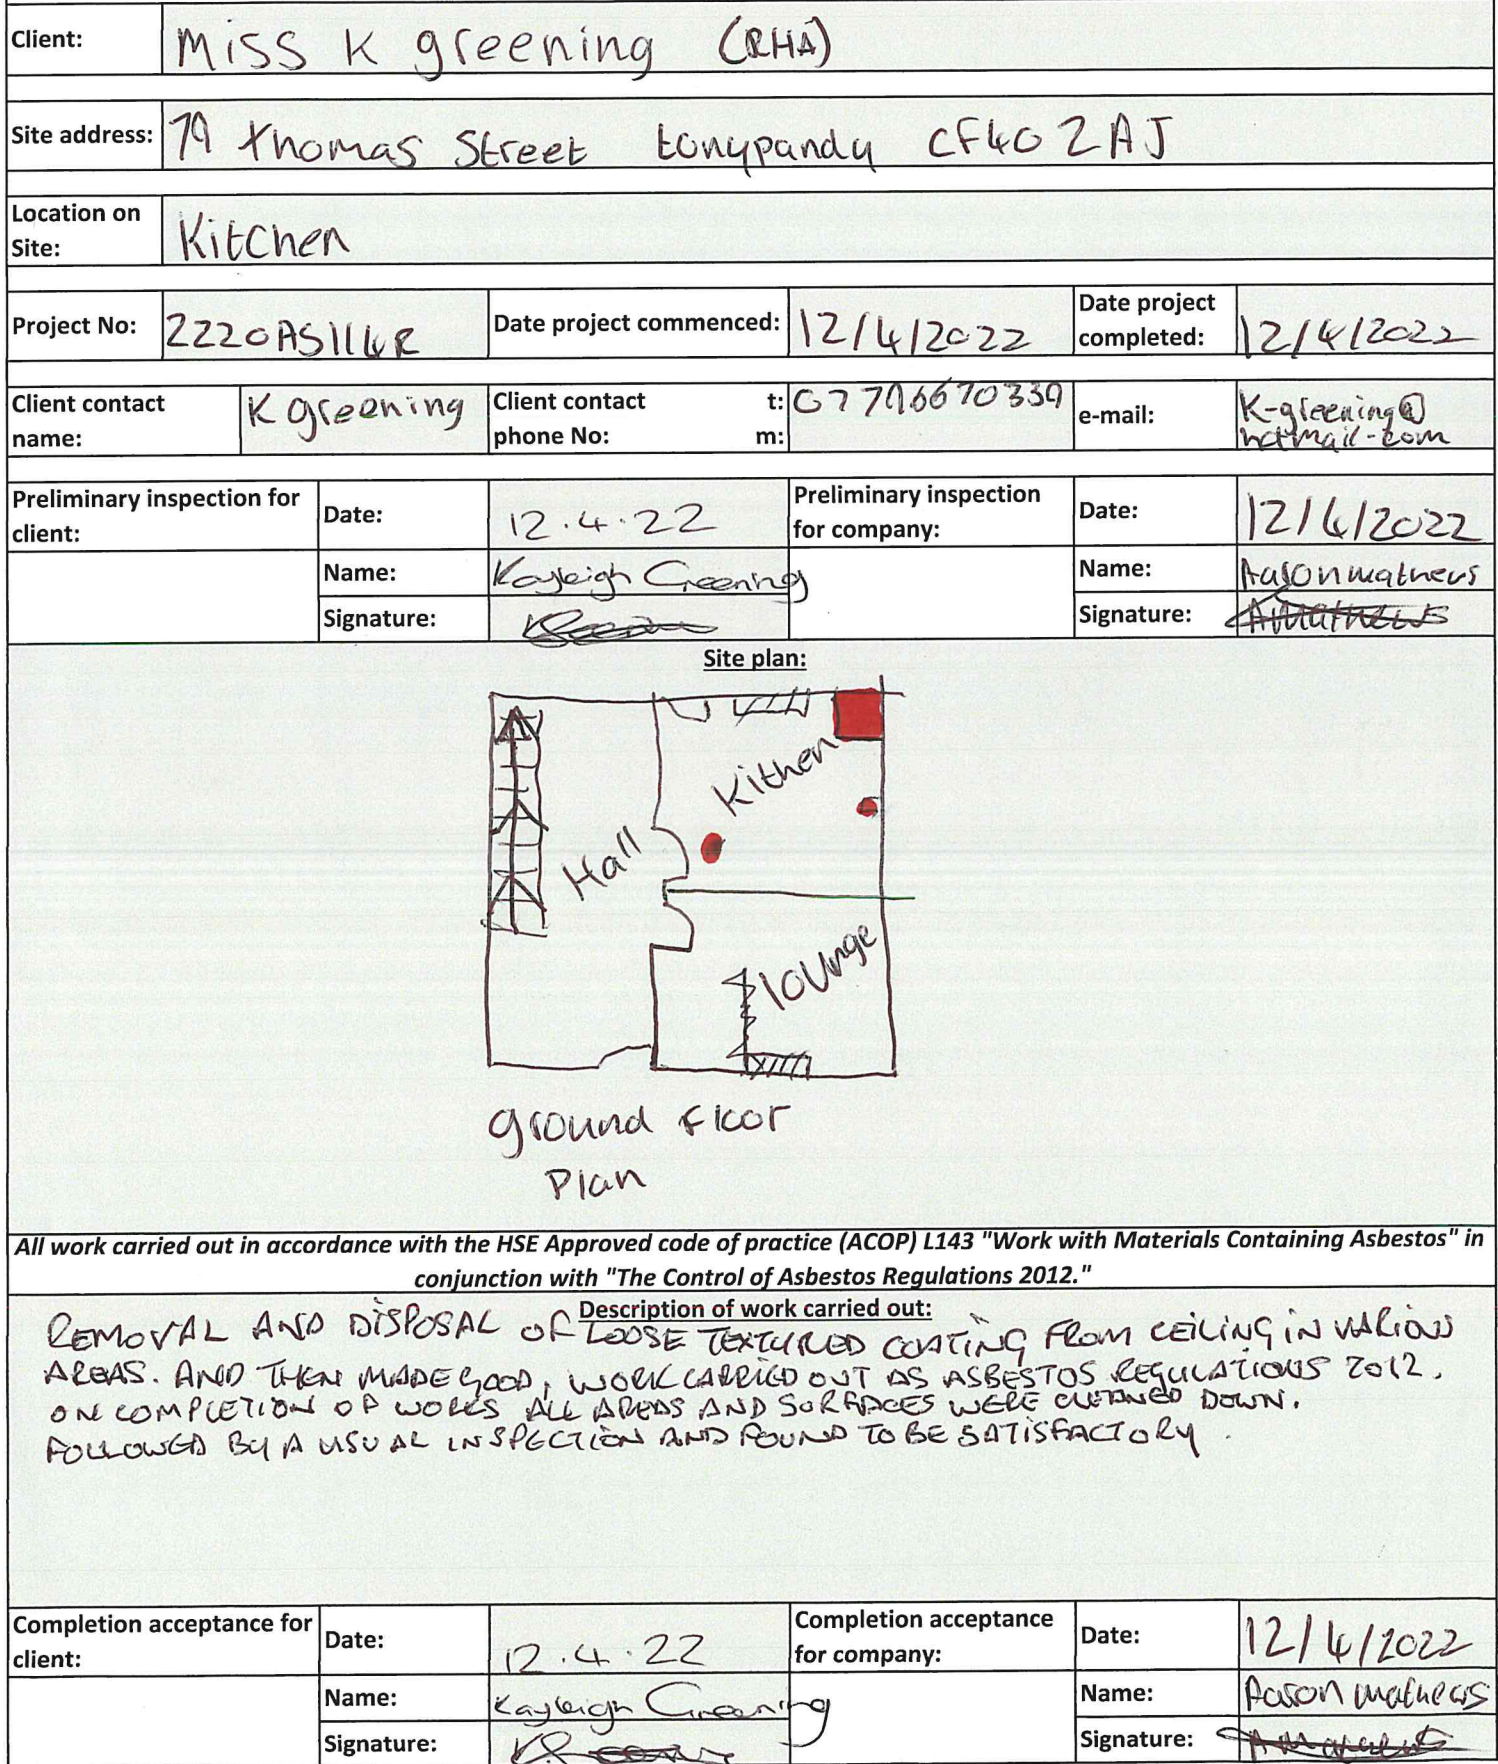 Client: Miss K greening (RHA)
Site address: 79 thomas Street tonypandy CF40 2AJ
Location on Site: Kitchen
Project No: 2220AS114R Date project commenced: 12/4/2022 Date project completed: 12/4/2022
Client contact name: K greening Client contact phone No: t: 07796670339 m: e-mail: K-greening@hotmail-com
Preliminary inspection for client: Date: 12.4.22 Preliminary inspection for company: Date: 12/4/2022
Name: Kayleigh Greening Name: Aaron mathews
Signature: Signature: AMathews
Site plan:
Kithen
Hall
lounge
ground floor
Plan
All work carried out in accordance with the HSE Approved code of practice (ACOP) L143 "Work with Materials Containing Asbestos" in
conjunction with "The Control of Asbestos Regulations 2012."
Description of work carried out:
REMOVAL AND DISPOSAL OF LOOSE TEXTURED COATING FROM CEILING IN VARIOUS
AREAS. AND THEN MADE GOOD, WORK CARRIED OUT AS ASBESTOS REGULATIONS 2012.
ON COMPLETION OF WORKS ALL AREAS AND SURFACES WERE CLEANED DOWN.
FOLLOWED BY A VISUAL INSPECTION AND FOUND TO BE SATISFACTORY.
Completion acceptance for client: Date: 12.4.22 Completion acceptance for company: Date: 12/4/2022
Name: Kayleigh Greening Name: Aaron mathews
Signature: Signature: AMathews